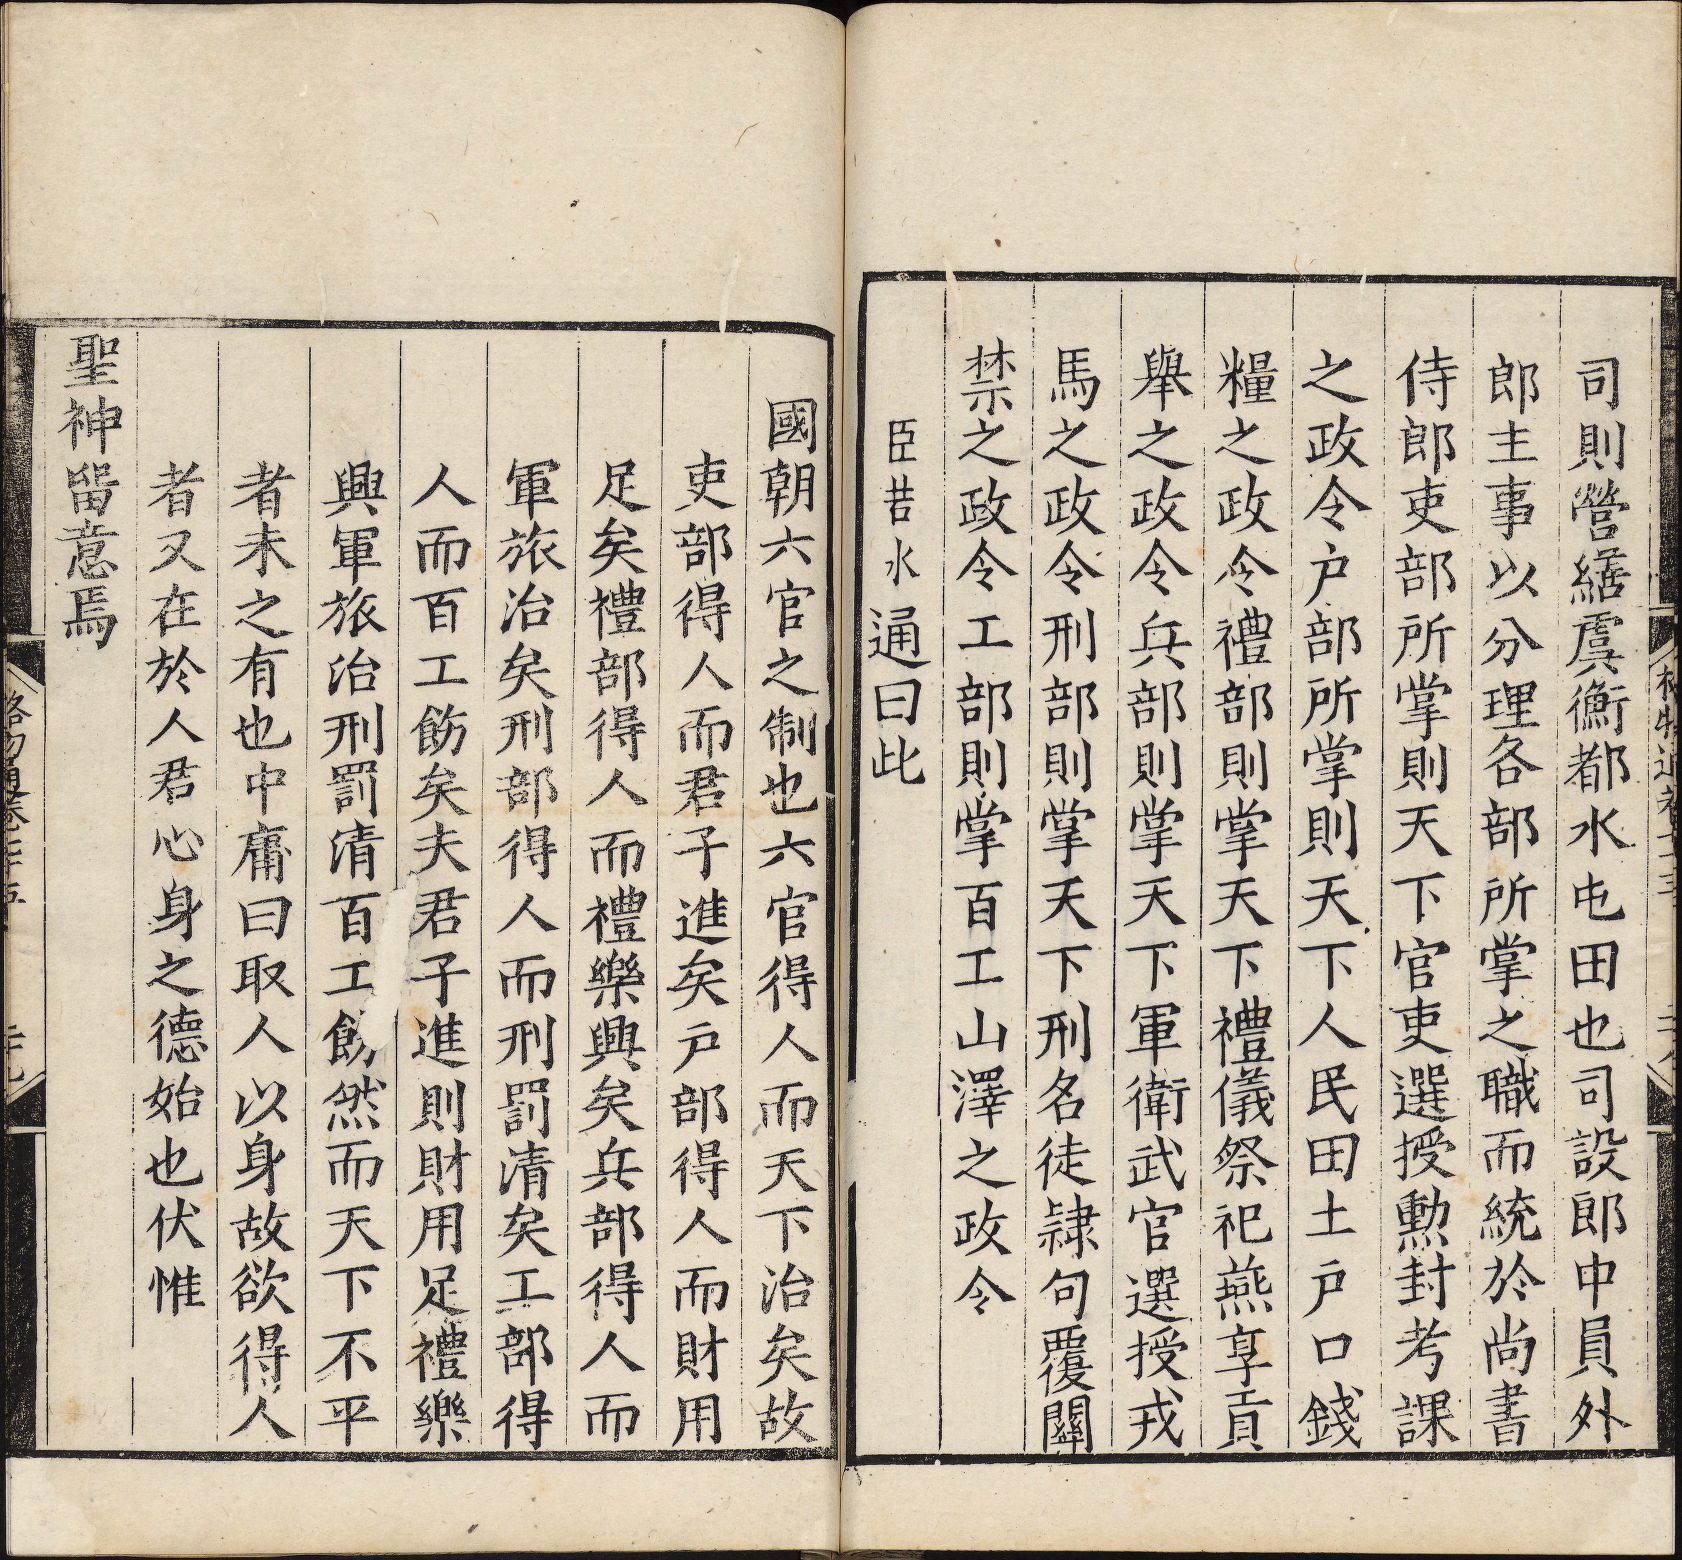 司則營繕虞衡都水屯田也司設郎中員外
郎主事以分理各部所掌之職而統於尚書
侍郎吏部所掌則天下官吏選授勲封考課
之政令户部所掌則天下人民田土户口錢
糧之政令禮部則掌天下禮儀祭祀燕享貢
舉之政令兵部則掌天下軍衛武官選授戎
馬之政令刑部則掌天下刑名徒隷句覆關
禁之政令工部則掌百工山澤之政令
臣若水通曰此
國朝六官之制也六官得人而天下治矣故
吏部得人而君子進矣户部得人而財用
足矣禮部得人而禮樂興矣兵部得人而
軍旅治矣刑部得人而刑罰清矣工部得
人而百工飭矣夫君子進則財用足禮樂
興軍旅治刑罰清百工飭然而天下不平
者未之有也中庸曰取人以身故欲得人
者又在於人君心身之德始也伏惟
聖神留意焉